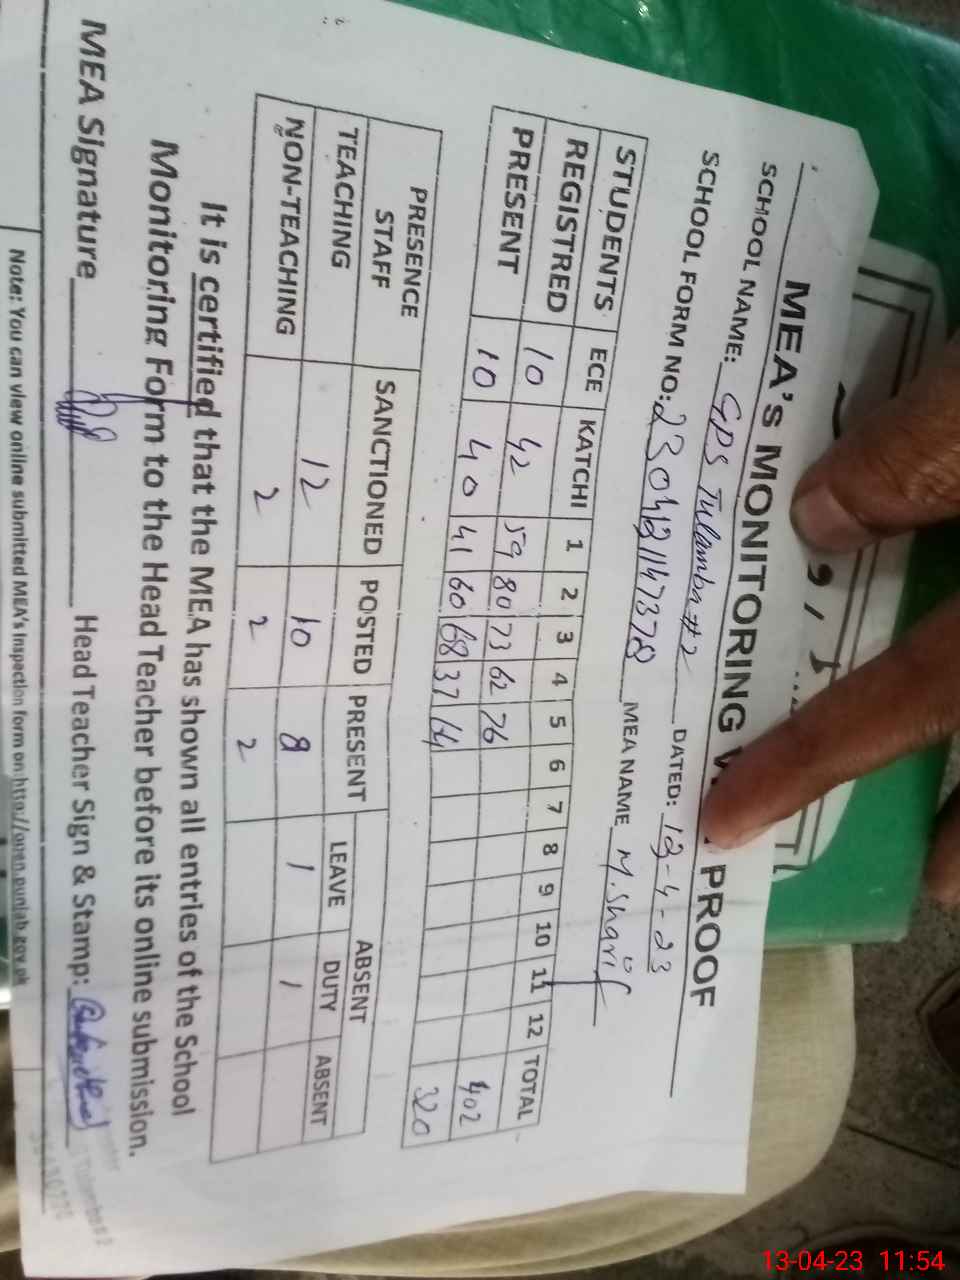 MEA'S MONITORING PROOF
SCHOOL NAME: GPS Tulamba #2 DATED: 13-4-23
SCHOOL FORM NO: MEA NAME M. Sharif
STUDENTS ECE KATCHI 1 2 3 4 5 6 7 8 9 10 11 12 TOTAL
REGISTRED 10 42 59 80 73 62 76 402
PRESENT 10 40 41 60 68 37 64 320
PRESENCE STAFF SANCTIONED POSTED PRESENT ABSENT
LEAVE DUTY ABSENT
TEACHING 12 10 8 1 1
NON-TEACHING 2 2 2
It is certified that the MEA has shown all entries of the School
Monitoring Form to the Head Teacher before its online submission.
MEA Signature Head Teacher Sign & Stamp:
Note: You can view online submitted MEA's Inspection form on http://open.punjab.gov.pk
13-04-23 11:54